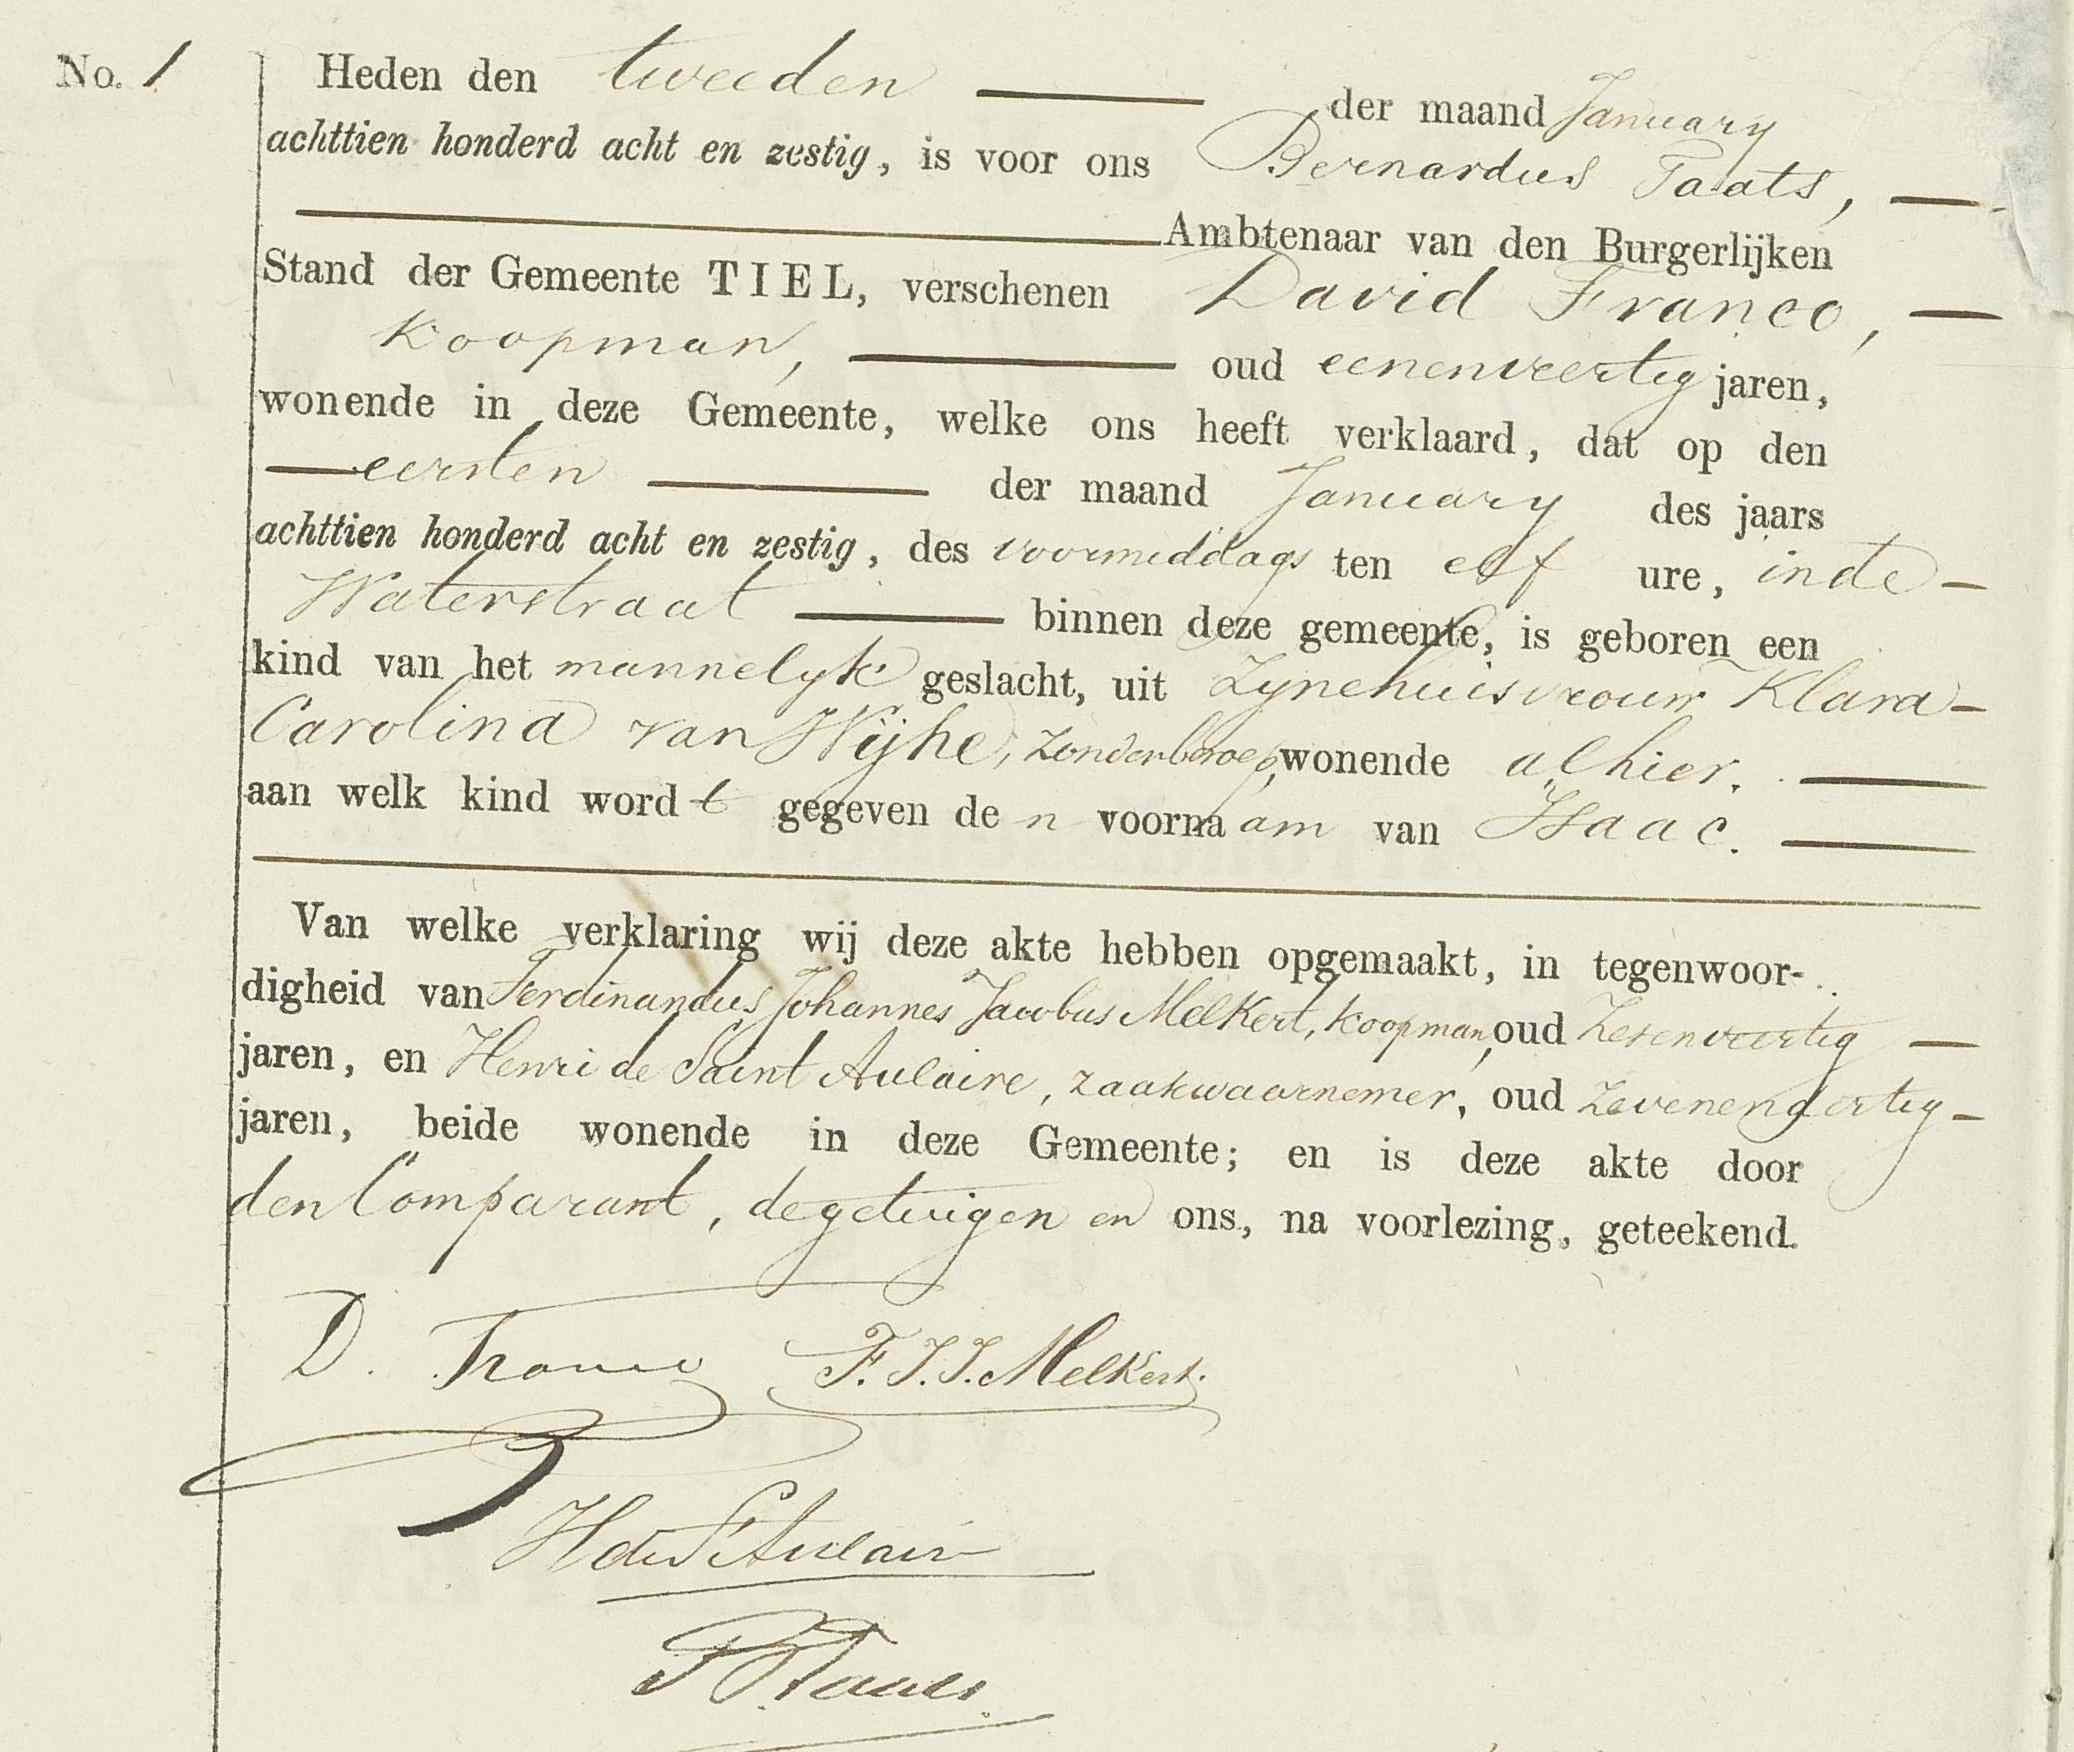 No. 1
Heden den tweeden der maand January
achttien honderd acht en zestig, is voor ons Bernardus Taats,
Ambtenaar van den Burgerlijken
Stand der Gemeente TIEL, verschenen David Franco,
Koopman, oud eenenveertig jaren,
wonende in deze Gemeente, welke ons heeft verklaard, dat op den
eersten der maand January des jaars
achttien honderd acht en zestig, des voormiddags ten elf ure, in de
Waterstraat binnen deze gemeente, is geboren een
kind van het mannelyk geslacht, uit Zyne huisvrouw Klara
Carolina van Wijhe, zonder beroep, wonende alhier.
aan welk kind wordt gegeven den voornaam van Isaac.
Van welke verklaring wij deze akte hebben opgemaakt, in tegenwoor-
digheid van Ferdinandus Johannes Jacobus Melkert, Koopman, oud Zesenveertig
jaren, en Henri de Saint Aulaire, zaakwaarnemer, oud Zevenendertig
jaren, beide wonende in deze Gemeente; en is deze akte door
den Comparant, de getuigen en ons, na voorlezing, geteekend.
D. Franco F. J. J. Melkert.
H de St Aulair
B Taats.